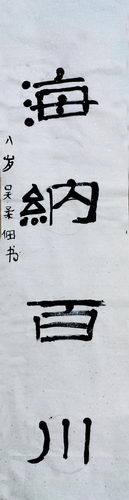 海納百川
八岁 吴柔佃书